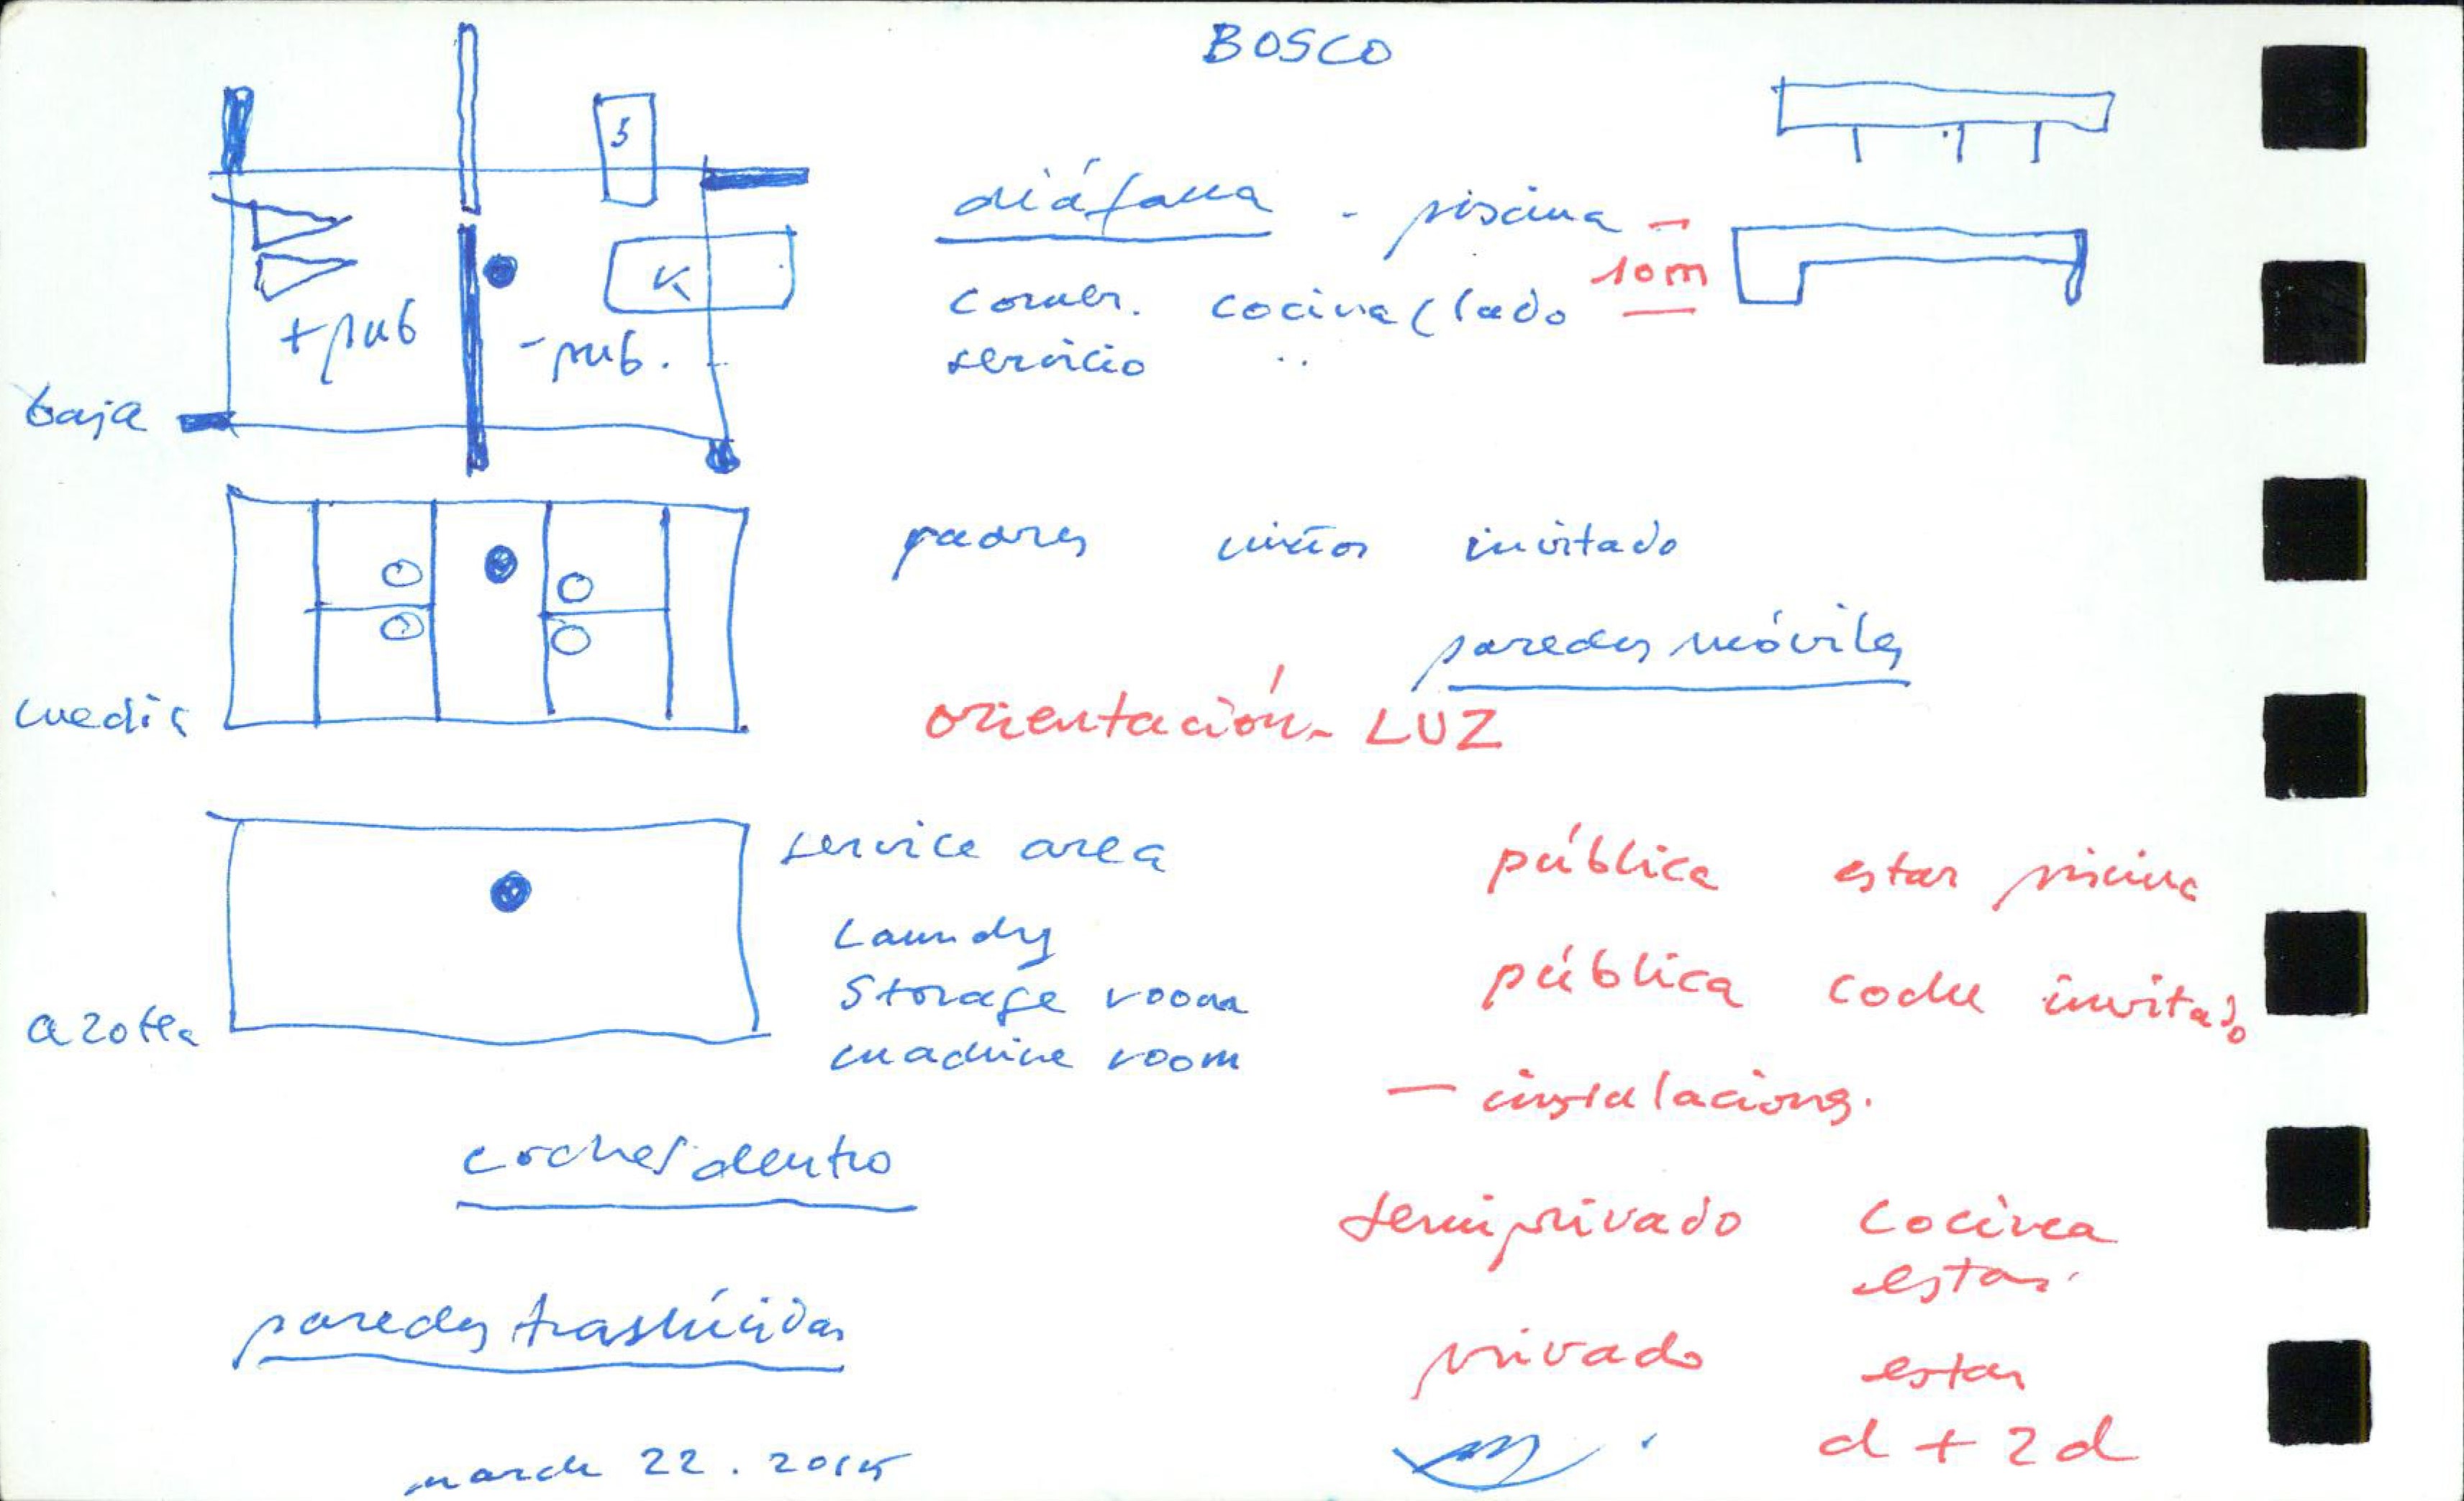 BOSCO
S
diáfana - piscina -
10m
K
comer. cocina (lado
servicio
+pub
-pub.
baja
padres niños invitado
paredes móviles
media
orientación - LUZ
service area
Laundry
Storage room
machine room
azotea
pública estar piscina
pública coche invitado
- instalaciones.
coches dentro
semiprivado cocina
estar
paredes traslúcidas
privado estar
d + 2d
march 22. 2015